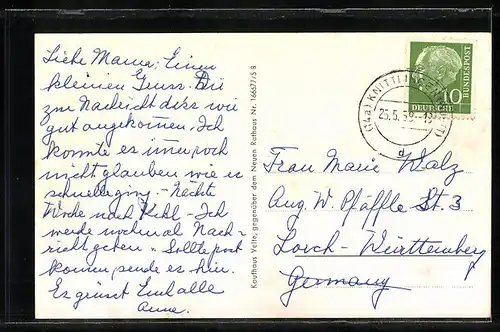 Liebe Mama: Einen
kleinen Gruss. Dir
zur Nachricht dass wir
gut angekommen. Ich
konnte es immer noch
nicht glauben wie es
schnell ging – Nächste
Woche nach Kehl – Ich
werde nochmal Nach-
richt geben – Sollte post
kommen, sende es hier.
Es grüsst Euch alle
Anne.
Kaufhaus Velte, gegenüber dem Neuen Rathaus Nr. 14667/5 B
(14a) KNITTLINGEN
25.5.59
d
10
DEUTSCHE
BUNDESPOST
Frau Marie Walz
Aug. W. Pfäffle St. 3
Lorch – Württemberg
Germany